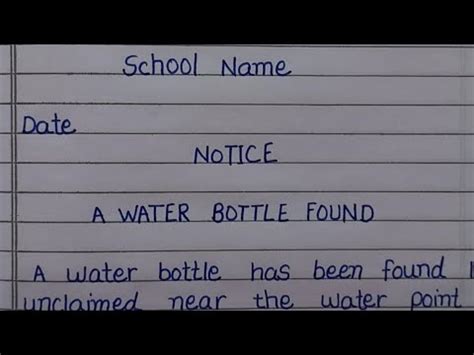 School Name
Date
NOTICE
A WATER BOTTLE FOUND
A water bottle has been found
unclaimed near the water point